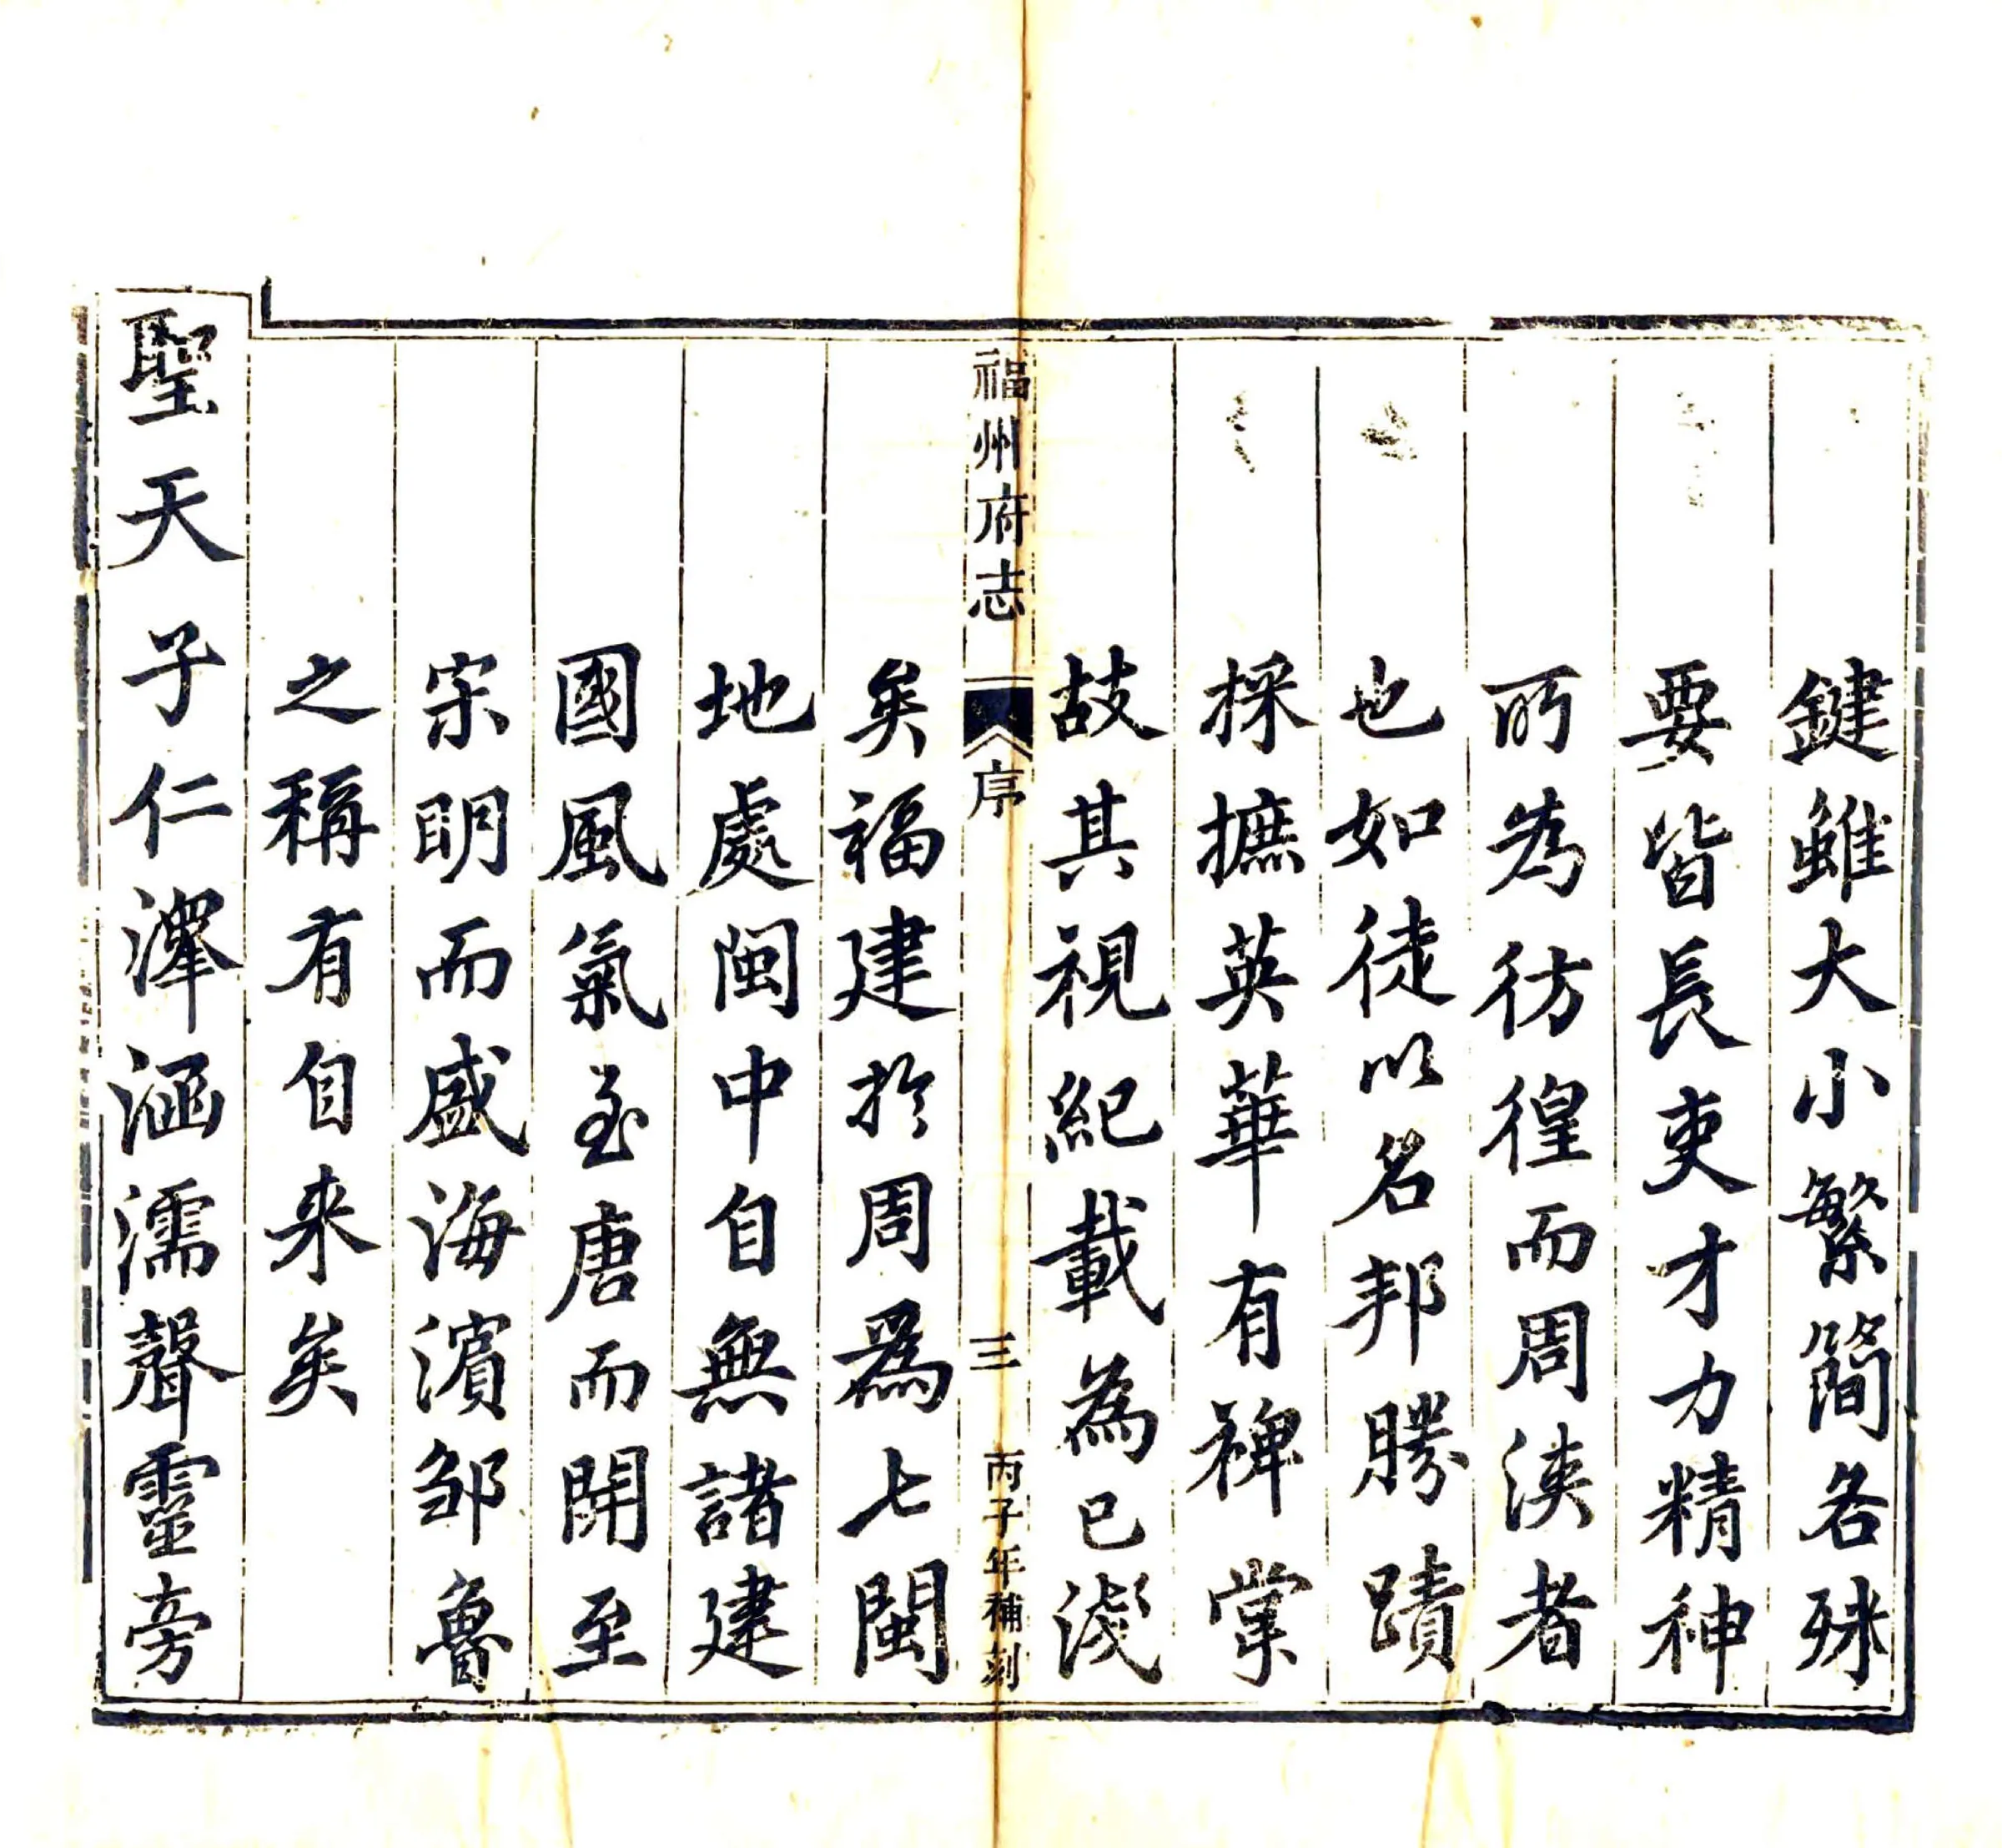 鍵雖大小繁簡各殊
要皆長吏才力精神
所為彷徨而周浹者
也如徒以名邦勝蹟
採摭英華有裨掌
故其視紀載為已淺
福州府志 序 三 丙子年補刻
矣福建於周爲七閩
地處閩中自無諸建
國風氣至唐而開至
宋明而盛海濱鄒魯
之稱有自来矣
聖天子仁澤涵濡聲靈旁